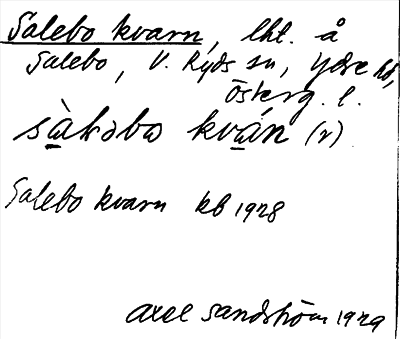 Salebo kvarn, lht. å
Salebo, V. Ryds sn, Ydre hd,
Österg. l.
sàləbo kván (r)
Salebo kvarn kb 1928
Axel Sandström 1929